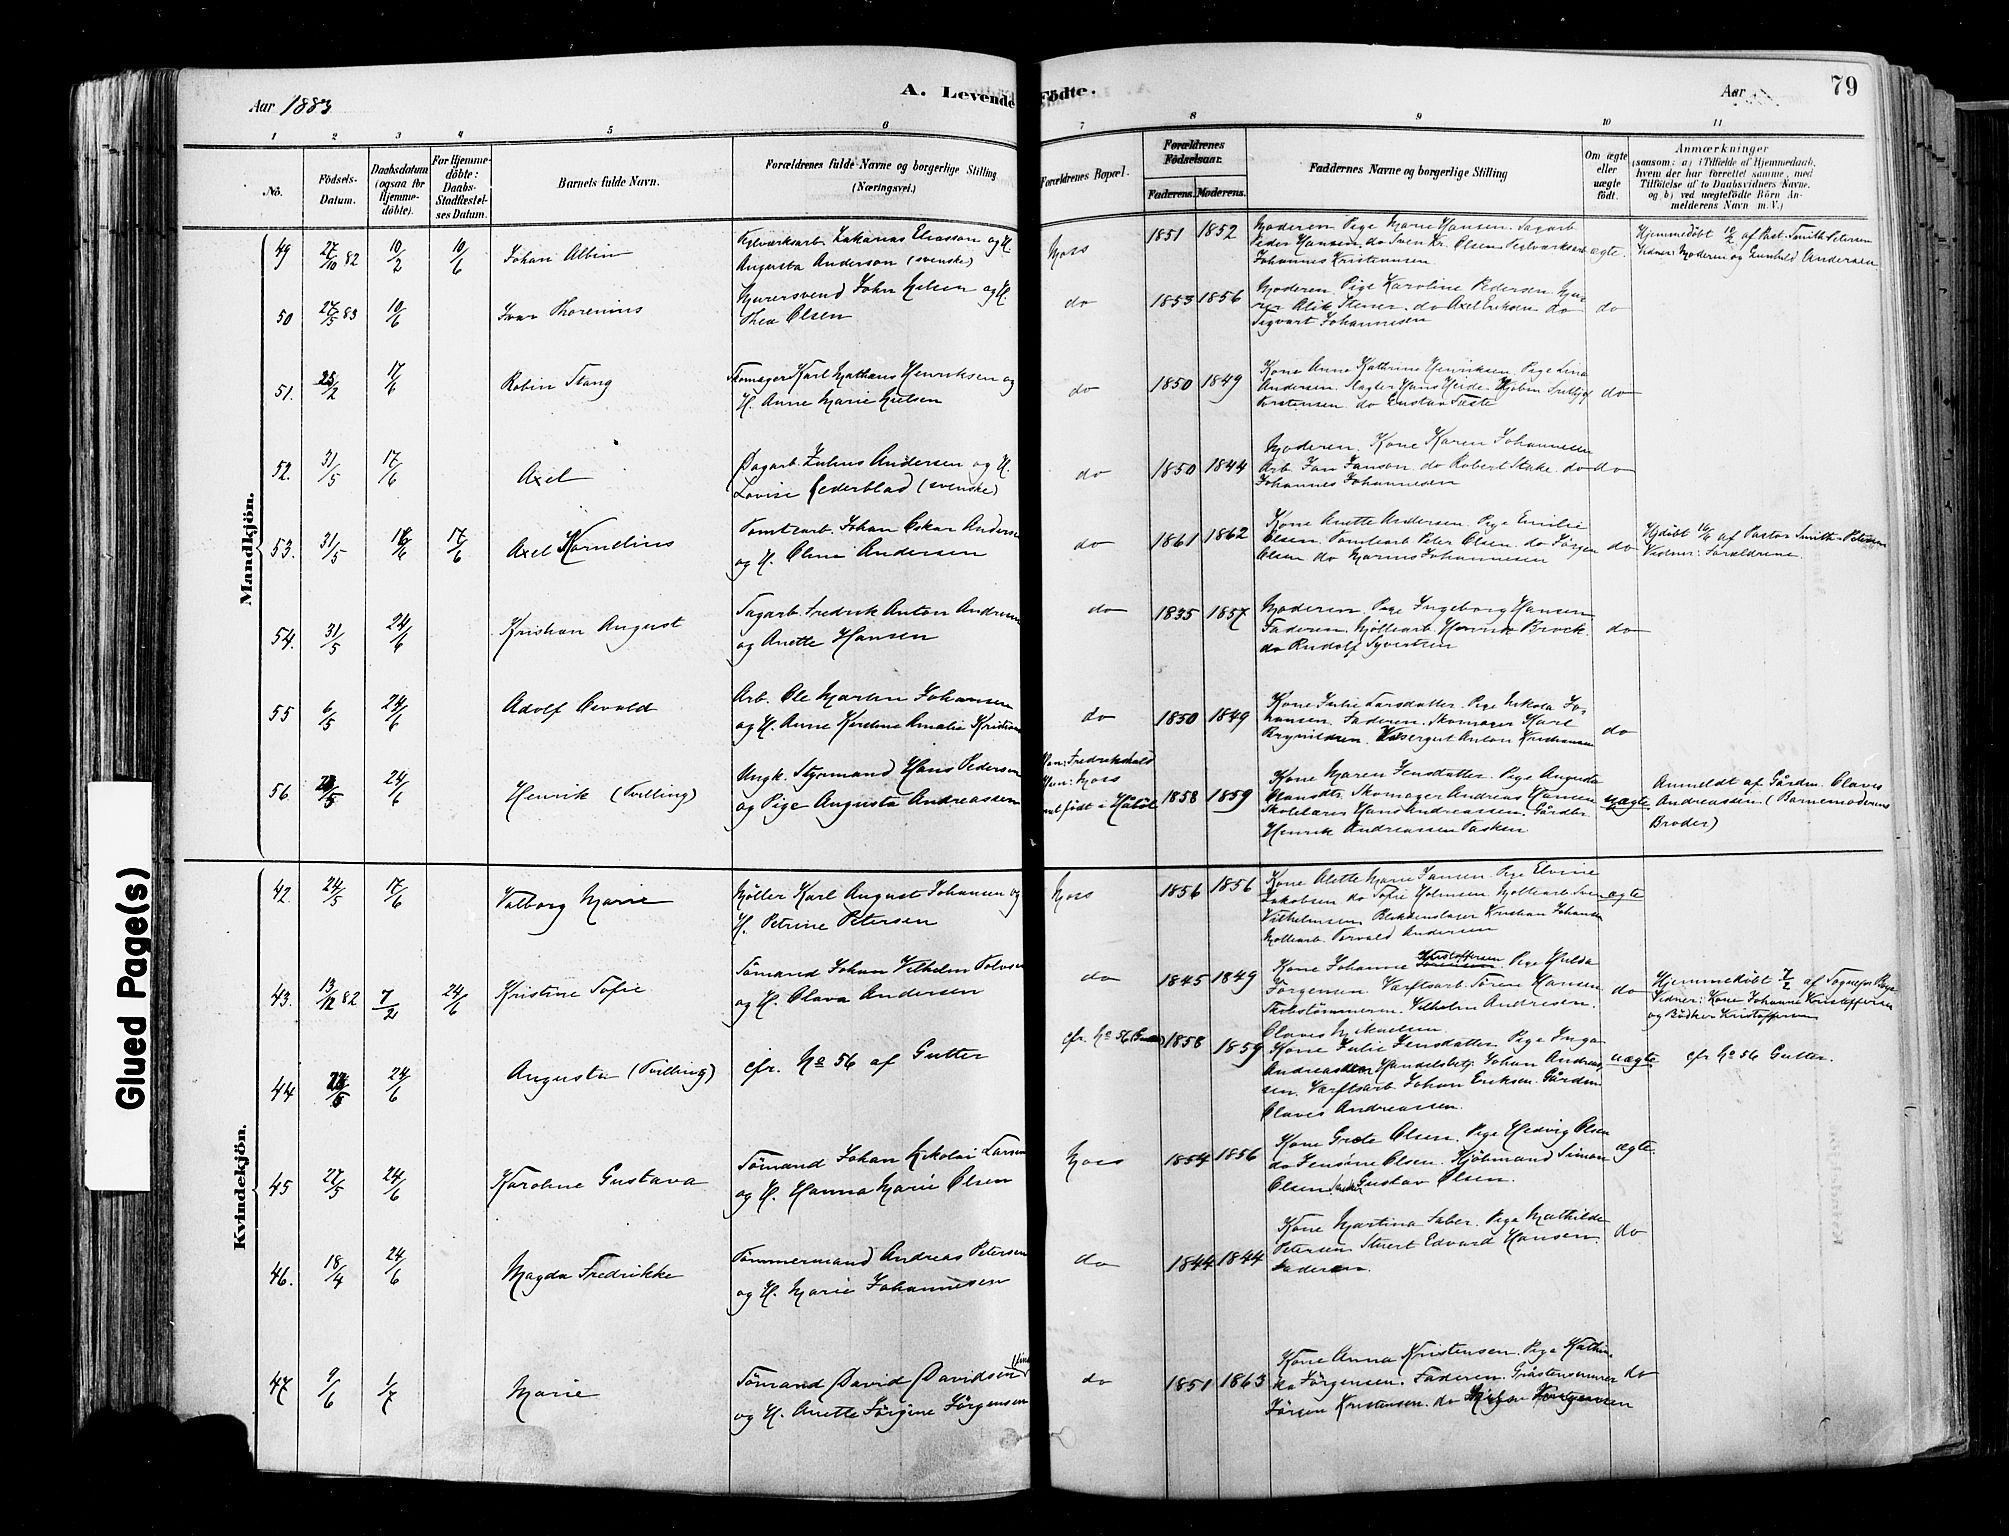 Aar 1883
A. Levende Fødte.
Aar
79
1 2 3 4 5 6 7 8 9 10 11
No.
Fødsels-Datum.
Daabsdatum (ogsaa for Hjemme-døbte).
For Hjemme-døbte: Daabs-Stadfæstel-ses Datum.
Barnets fulde Navn.
Forældrenes fulde Navne og borgerlige Stilling (Næringsvei.)
Forældrenes Bopæl.
Forældrenes Fødselsaar.
Faderens. Moderens.
Faddernes Navne og borgerlige Stilling
Om ægte eller uægte født.
Anmærkninger
(saasom: a) i Tilfælde af Hjemmedaab,
hvem der har forrettet samme, med
Tilføielse af to Daabsvidners Navne,
og b) ved uægtefødte Børn An-
melderens Navn m. V.)
Mandkjøn.
49 27/10 82 10/2 10/6 Johan Albin
Augusta Anderson (svenske)
Moss 1851 1852 Moderen. Pige Marie Hansen. Sagarb.
Peder Hansen. do Sven Kr. Olsen.
Johannes Kristensen
ægte.
Hjemmedøbt 10/2 af Past. Smith Petersen
Vidner: Moderen og Gunhild Andersen
50 27/5 83 10/6 Ivar Thorenius
Murersvend John Nilsen og H.
Thea Olsen
do 1853 1856 Moderen. Pige Karoline Pedersen. Mu-
rer Alik Stener. do Axel Eriksen do
Sigvart Johannesen
do
51. 25/2 17/6 Robin Stang
Skomager Karl Mathæus Henriksen og
H. Anne Marie Nielsen
do 1850 1849 Kone Anne Kathrine Henriksen. Pige Lina
Andersen. Slagter Hans Heide.
Kristensen. do Gustav Tæste
do
52. 31/5 17/6 Axel
Dagarb. Julius Andersen og H.
Lovise Cederblad (svenske)
do 1850 1844 Moderen. Kone Karen Johannesen
Arb. Jan Janson. do Robert Stake. do
Johannes Johannesen
do
53. 31/5 16/6 17/6 Axel Kornelius
Tomtearb. Johan Oskar Anderse
og H. Olina Andersen
do 1861 1862 Kone Anette Andersen. Pige Emilie
Olsen. Tomtearb. Peter Olsen. do Jørgen
Olsen do Marius Johannesen
do
Hjdøbt 16/6 af Pastor Smith-Petersen
Vidner: Forældrene
54. 31/5 24/6 Kristian August
Sagarb. Fredrik Anton Andersen
og Anette Hansen
do 1835 1857 Moderen. Pige Ingeborg Hansen
Faderen. Møllearb. Henrik Brock.
do Rudolf Syversten
do
55 6/5 24/6 Adolf Osvald
Arb. Ole Martin Johansen
og H. Anne Kirstine Amalie Kristians
do 1850 1849 Kone Julie Larsdatter. Pige Nikola Jo-
hansen. Faderen. Skomager Karl
Brynildsen. Visergut Anton Kristiansen
do
56. 28/5 24/6 Henrik (Tvilling)
Ungk. Styrmand Hans Pedersen
og Pige Augusta Andreassen
Han: Fredrikshald
Hun: Moss
født i Hobøl
1858 1859 Kone Maren Jensdatter. Pige Augusta
Olausdtr. Skomager Andreas Hansen
Skolelærer Hans Andreassen. Gårdbr.
Henrik Andreassen Tasken
uægte
Anmeldt af Gården. Olaves
Andreassen (Barnemoderens
Broder)
Kvindekjøn.
42. 24/5 17/6 Valborg Marie
Møller Karl August Johansen og
H. Petrine Petersen
Moss 1856 1856 Kone Alette Marie Jansen. Pige Elvine
Jakobsen do Sofie Holmsen. Møllearb. Sven
Vilhelmsen. Blikkenslager Kristian Johansen
Møllearb. Torvald Andersen
ægte
43. 13/12 82 7/2 24/6 Kristine Sofie
Sömand Johan Vilhelm
og H. Olava Andersen
do 1845 1849 Kone Johanne Kristoffersen. Pige Hulda
Jørgensen. Værftsarb. Sören Hansen
Skibstömmerm. Vilhelm Andresen.
Olaves Mikaelsen
do
Hjemmedøbt 7/2 af Sognepr. Bugge
Vidner: Kone Johanne Kristoffersen
og Bødker Kristoffersen
44 28/5 24/6 Augusta (Tvilling)
cfr. No 56 af Gutter
cfr. No 56 (Gutter) 1858 1859 Kone Julie Jensdatter. Pige Inga
Andreassen Handelsbetj. Johan Andreas-
sen. Værftsarb. Johan Eriksen. Gården
Olaves Andreassen.
uægte
cfr. No 56 Gutter.
45 27/5 24/6 Karoline Gustava
Sömand Johan Nikolai Larsen
og H. Hanna Marie Olsen
Moss 1854 1856 Kone Grete Olsen. Pige Hedvig Olsen
do Jensine Olsen. Sjömand Simon
Olsen. Gustav Olsen.
ægte.
46. 18/4 24/6 Magda Fredrikke
Tømmermand Andreas Petersen
og H. Marie Johannesen
do 1844 1844 Kone Martina Faber. Pige Mathilde
Petersen Stuert Edvard Hansen
Faderen.
do
47 9/6 1/7 Marie
Sömand David Davidsen
og H. Anette Jørgine Jørgensen
do 1851 1863 Kone Anna Kristensen. Pige Kathin-
ka Jørgensen. Faderen. Gråstensmurer
Jørgen Kristensen. do
do
Glued Page(s)